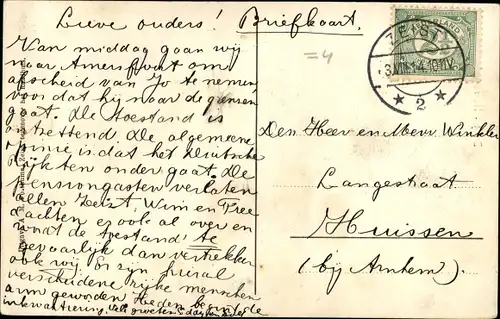 Lieve ouders!
Briefkaart.
Van middag gaan wij
naar Amersfoort om
afscheid van Jo te nemen
voor dat hij naar de grenzen
gaat. De toestand is
ontzettend. De algemeene
opinie is dat het Duitsche
Rijk ten onder gaat. De
pensiongasten verlaten
allen Zeist, Wim en Free
dachten er ook al over en
wordt de toestand te
gevaarlijk dan vertrekken
ook wij. Er zijn
verscheidene rijke menschen
arm geworden. Heden begint de
inkwartiering,
ZEIST
2
=4
Den Heer en Mevr. Winkler
Langestraat
Huissen
(bij Arnhem).